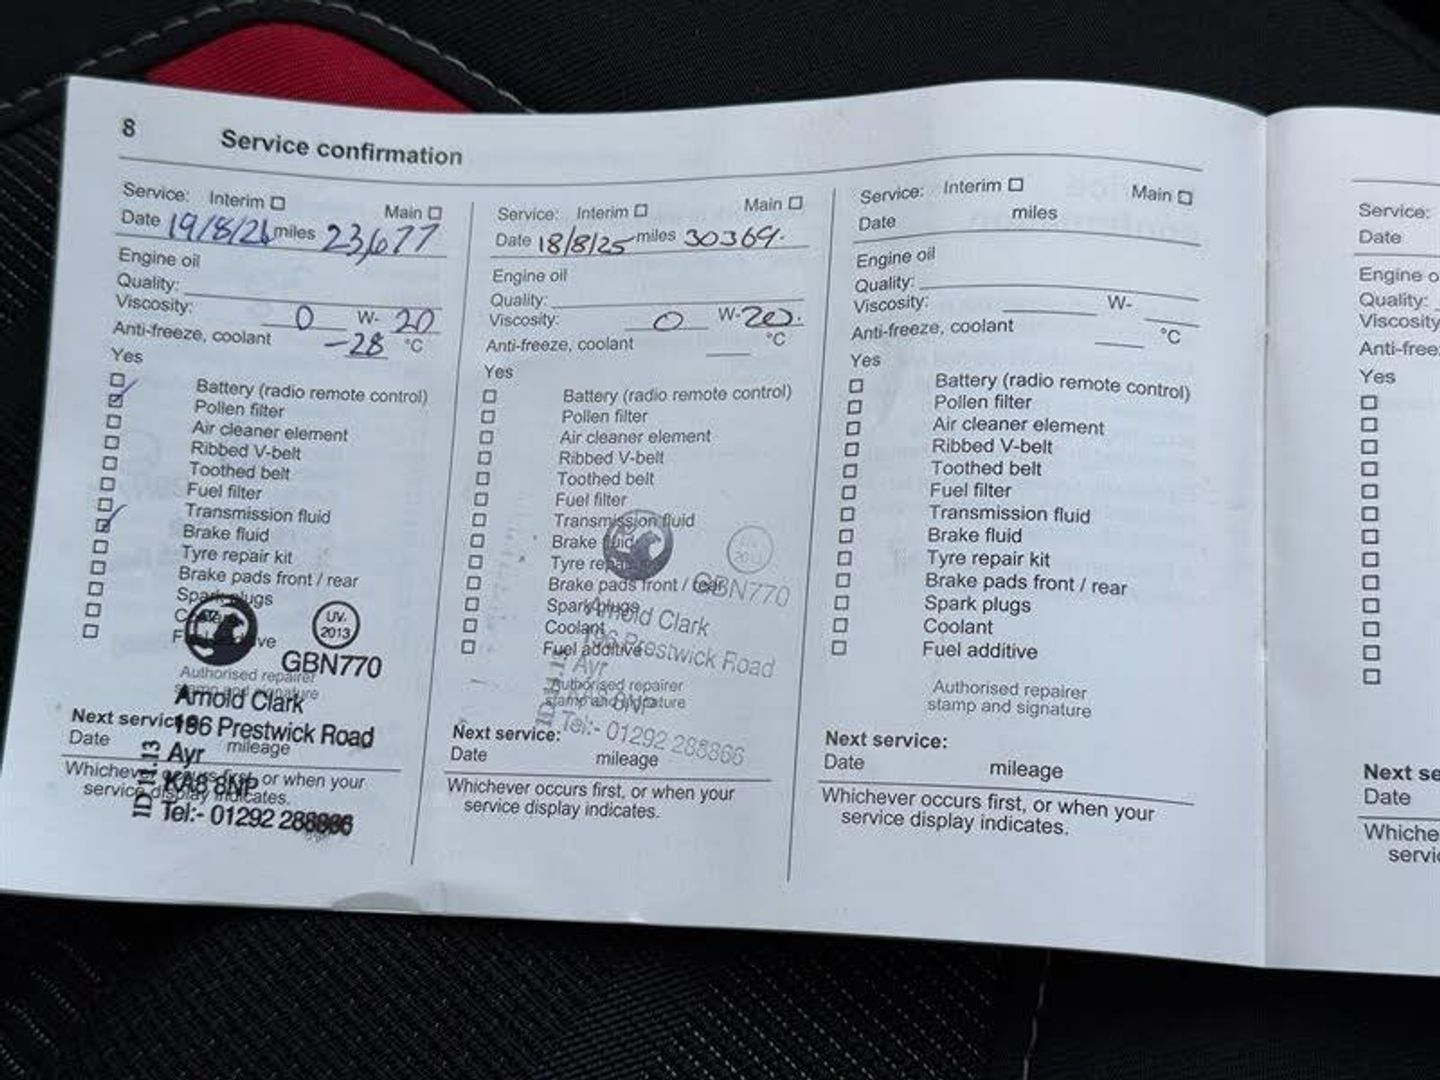 8 Service confirmation
Service: Interim Main
Date 19/8/24 miles 23,677
Engine oil
Quality:
Viscosity: 0 W- 20
Anti-freeze, coolant -28 °C
Yes
Battery (radio remote control)
Pollen filter
Air cleaner element
Ribbed V-belt
Toothed belt
Fuel filter
Transmission fluid
Brake fluid
Tyre repair kit
Brake pads front / rear
Spark plugs
UV. 2013
GBN770
Authorised repairer
stamp and signature
Arnold Clark
196 Prestwick Road
Ayr
KA8 8NP
Tel:- 01292 288866
ID 11.13
Next service:
Date mileage
Whichever occurs first, or when your
service display indicates.
Service: Interim Main
Date 18/8/25 miles 30369.
Engine oil
Quality:
Viscosity: 0 W- 20.
Anti-freeze, coolant °C
Yes
Battery (radio remote control)
Pollen filter
Air cleaner element
Ribbed V-belt
Toothed belt
Fuel filter
Transmission fluid
Brake fluid
Tyre repair
Brake pads front / rear
Spark plugs
Coolant
Fuel additive
2013
GBN770
Arnold Clark
196 Prestwick Road
Ayr
KA8 8NP
Tel:- 01292 288866
Authorised repairer
stamp and signature
Next service:
Date mileage
Whichever occurs first, or when your
service display indicates.
Service: Interim Main
Date miles
Engine oil
Quality:
Viscosity: W-
Anti-freeze, coolant °C
Yes
Battery (radio remote control)
Pollen filter
Air cleaner element
Ribbed V-belt
Toothed belt
Fuel filter
Transmission fluid
Brake fluid
Tyre repair kit
Brake pads front / rear
Spark plugs
Coolant
Fuel additive
Authorised repairer
stamp and signature
Next service:
Date mileage
Whichever occurs first, or when your
service display indicates.
Service:
Date
Engine o
Quality:
Viscosity
Anti-free
Yes
Next se
Date
Whiche
servi